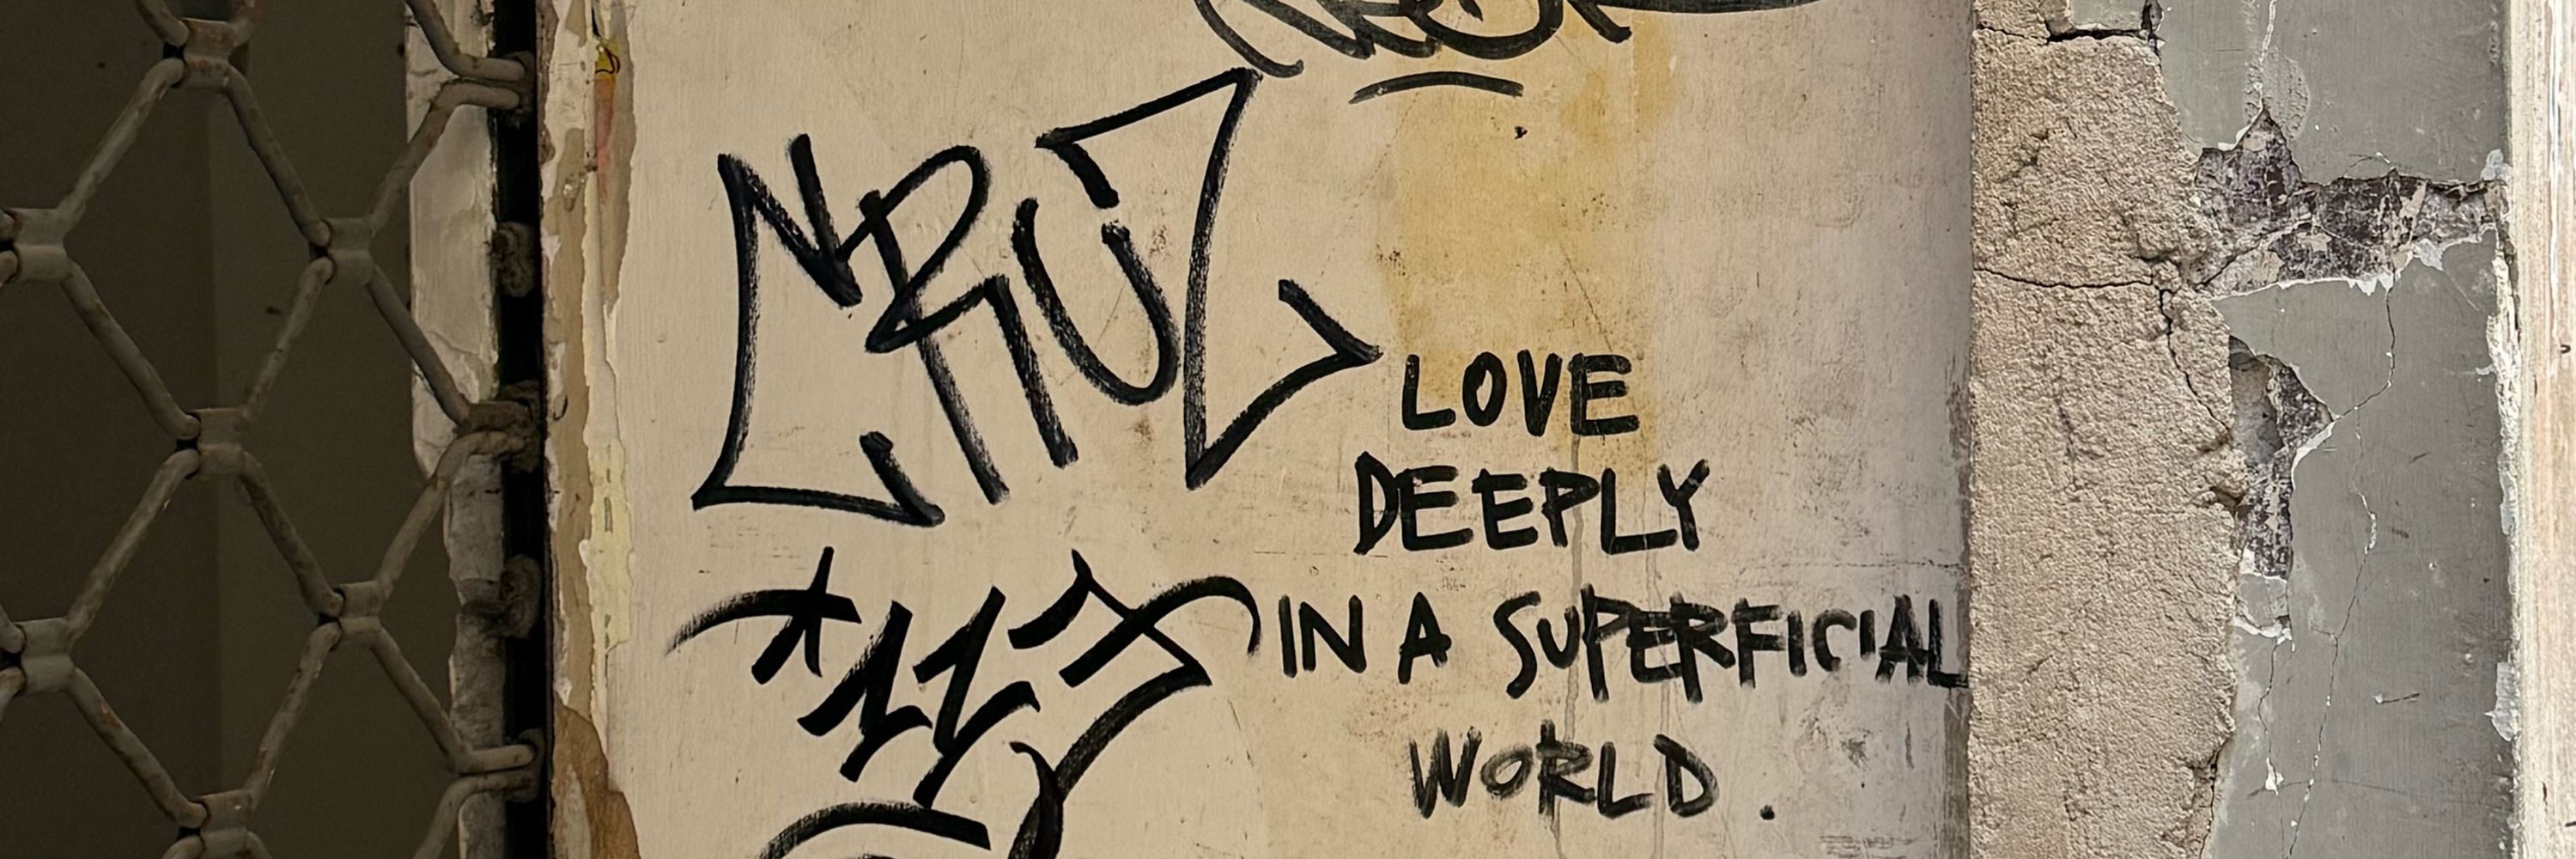 CRUZ
LOVE
DEEPLY
IN A SUPERFICIAL
WORLD.